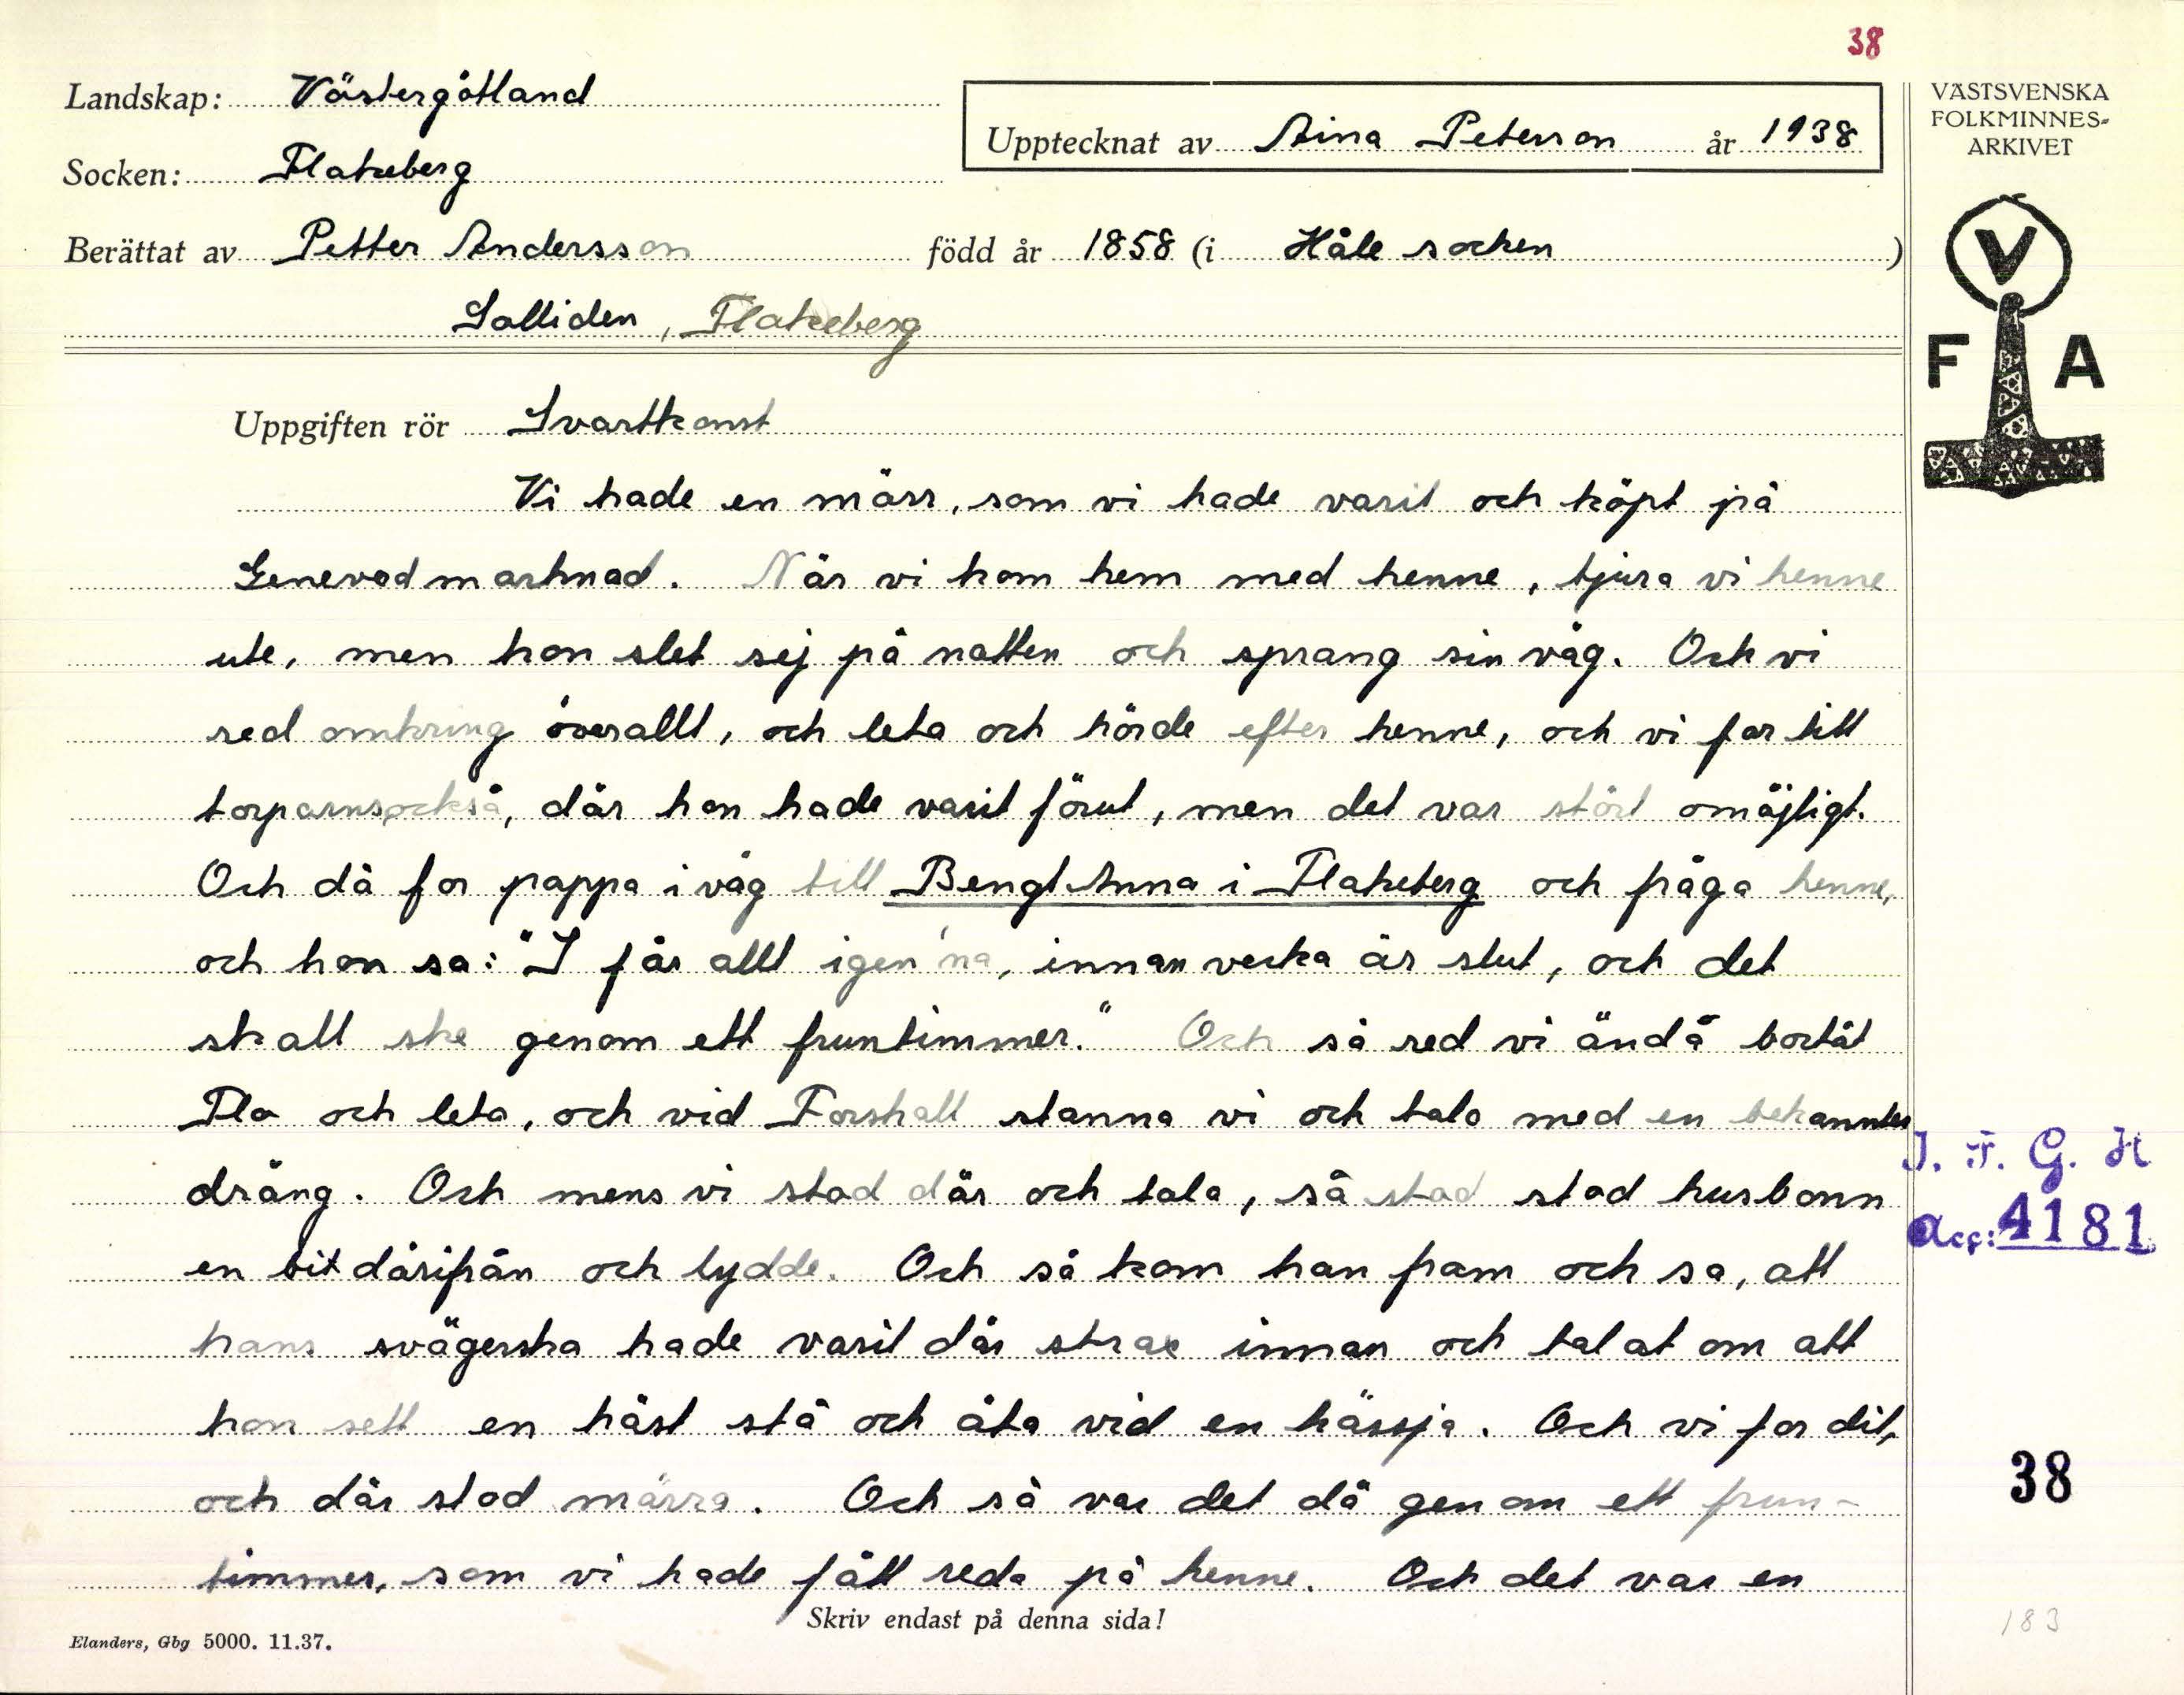 38
Landskap: Västergötland
Upptecknat av Aina Peterson år 1938
Socken: Flakeberg
Berättat av Petter Andersson född år 1858 (i Håle socken)
Salliden, Flakeberg
VÄSTSVENSKA
FOLKMINNES-
ARKIVET
V
F A
Uppgiften rör Svartkonst
Vi hade en märr, som vi hade varit och köpt på
Genevad marknad. När vi kom hem med henne, tjura vi henne
ute, men hon slet sej på natten och sprang sin väg. Och vi
red omkring överallt, och leta och hörde efter henne, och vi for till
torparns också, där hon hade varit förut, men det var stört omöjligt.
Och då for pappa i väg till Bengt Anna i Flakeberg och fråga henne,
och hon sa: "I får allt igen'na, innan vecka är slut, och det
skall ske genom ett fruntimmer." Och så red vi ändå bortåt
Flo och leta, och vid Forshall stanna vi och tala med en bekanter
dräng. Och mens vi stod där och tala, så stod stod husbonn
en bit därifrån och lydde. Och så kom han fram och sa, att
hans svägerska hade varit där strax innan och talat om att
hon sett en häst stå och äta vid en hässja. Och vi for dit,
och där stod märra. Och så var det då genom ett frun-
timmer, som vi hade fått reda på henne. Och det var en
I. F. G. H
Acc: 4181
38
183
Skriv endast på denna sida!
Elanders, Gbg 5000. 11.37.